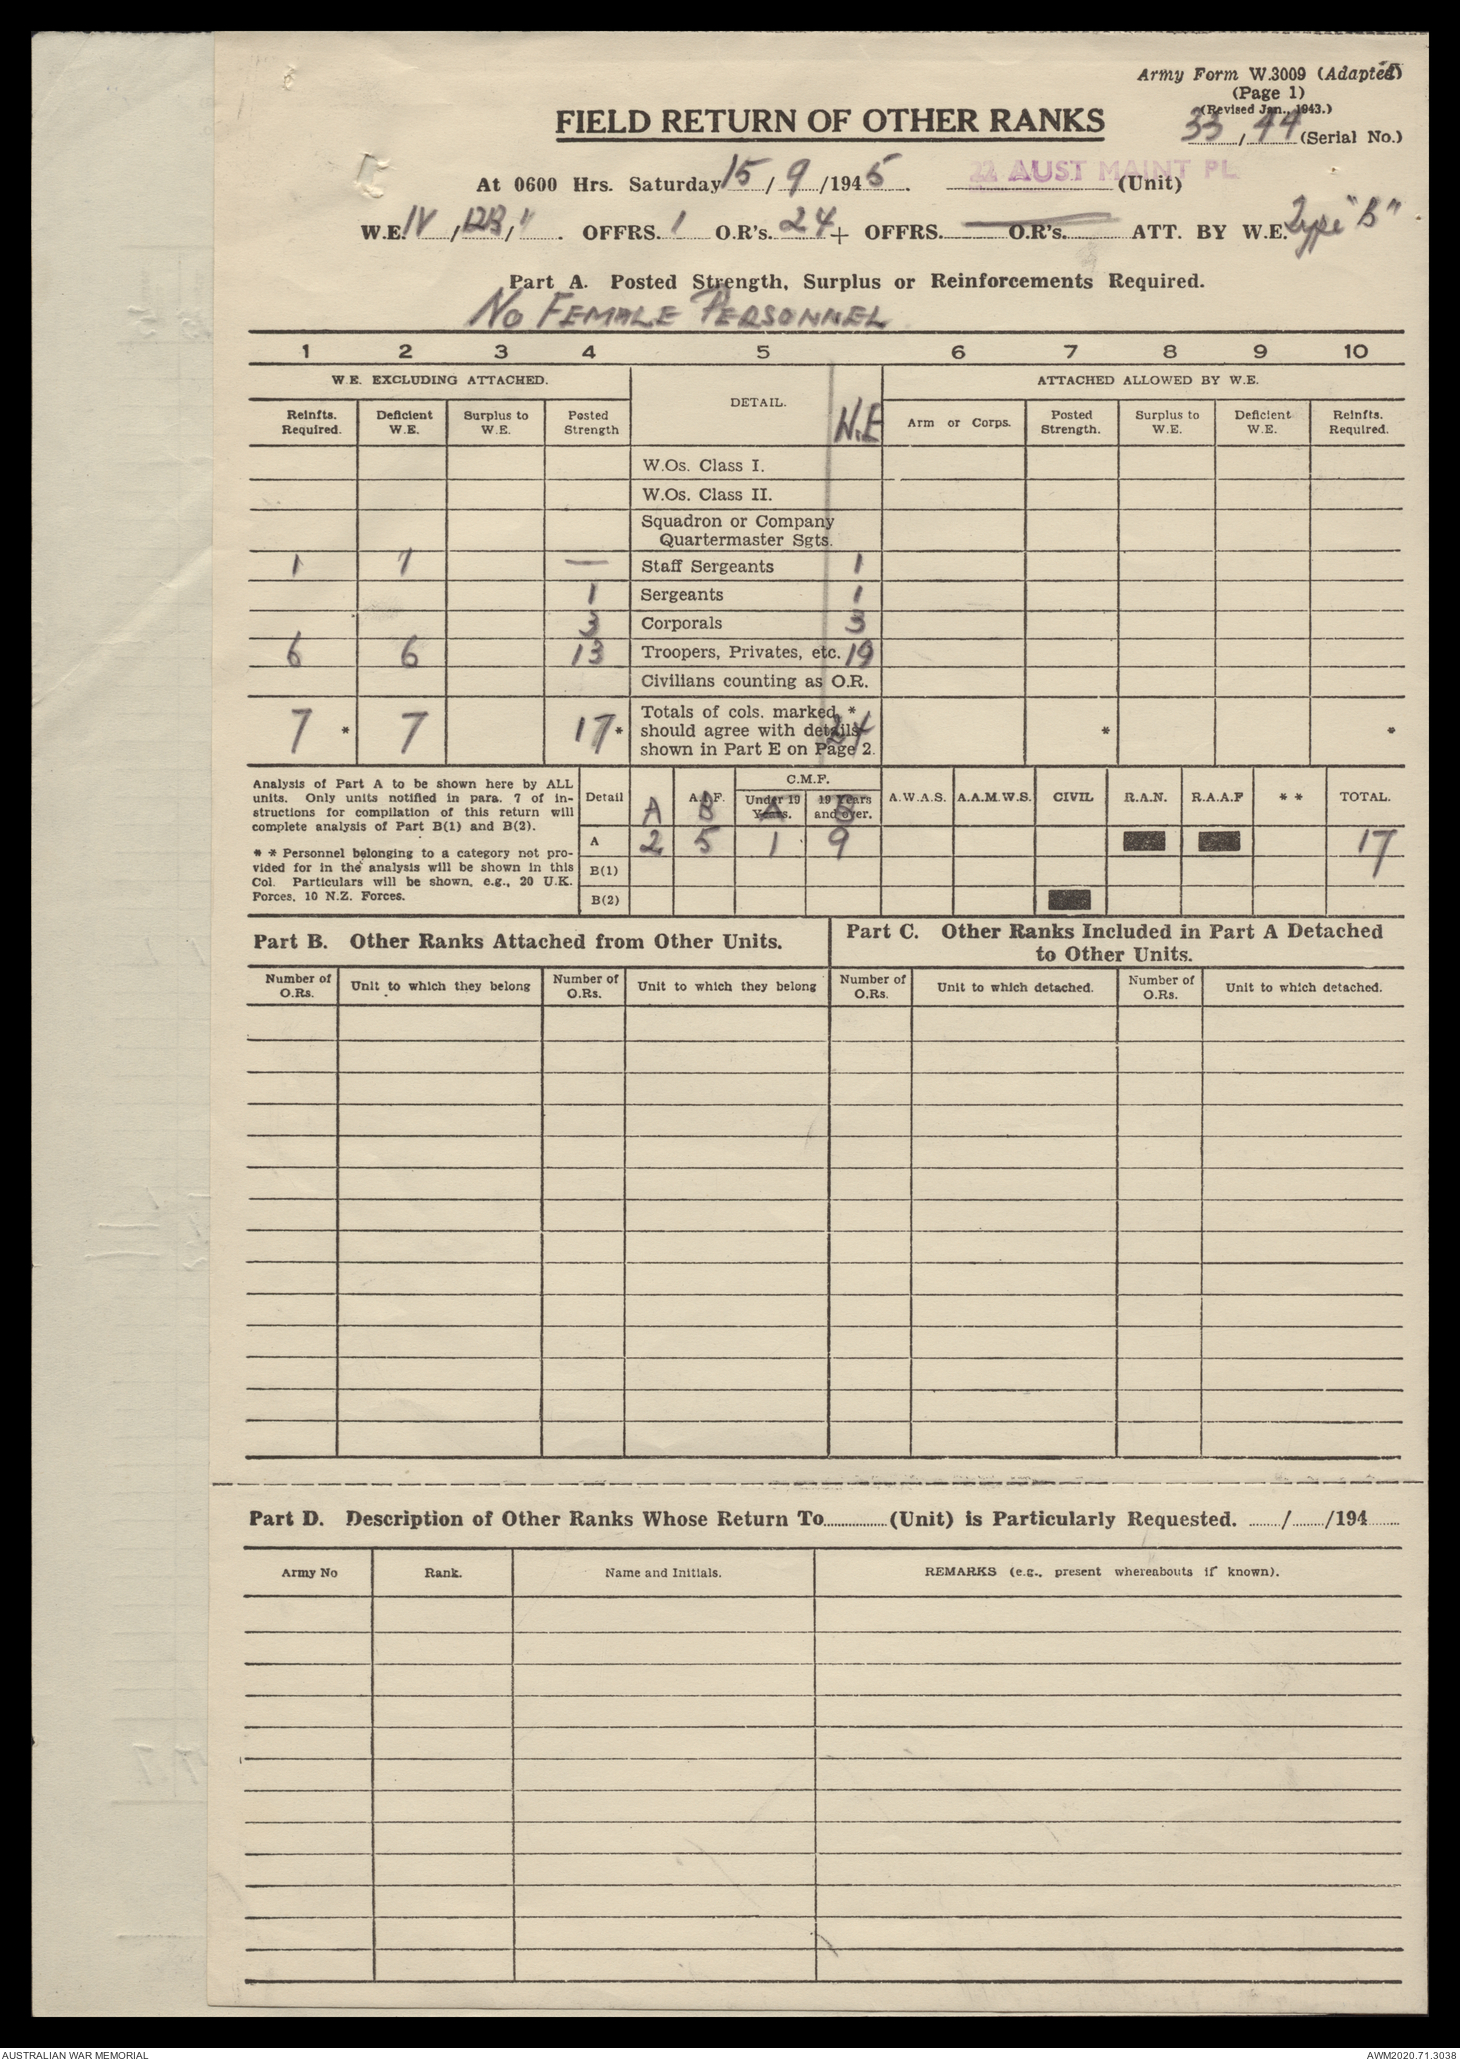 Army Form W.3009 (Adapted)
(Page 1)
(Revised Jan., 1943.)
FIELD RETURN OF OTHER RANKS
33 / 44 (Serial No.)
At 0600 Hrs. Saturday 15 / 9 /1945. 22 AUST MAINT PL (Unit)
W.E. IV / 12B / 1 . OFFRS. 1 O.R's. 24 + OFFRS. O.R's. ATT. BY W.E. Type "B"
Part A. Posted Strength, Surplus or Reinforcements Required.
No FEMALE PERSONNEL
1 2 3 4 5 6 7 8 9 10
W.E. EXCLUDING ATTACHED. DETAIL. W.E ATTACHED ALLOWED BY W.E.
Reinfts. Required. Deficient W.E. Surplus to W.E. Posted Strength Arm or Corps. Posted Strength. Surplus to W.E. Deficient W.E. Reinfts. Required.
W.Os. Class I.
W.Os. Class II.
Squadron or Company
Quartermaster Sgts.
1 1 — Staff Sergeants 1
1 Sergeants 1
3 Corporals 3
6 6 13 Troopers, Privates, etc. 19
Civilians counting as O.R.
7 * 7 17 * Totals of cols. marked * should agree with details shown in Part E on Page 2. 24 * *
Analysis of Part A to be shown here by ALL
units. Only units notified in para. 7 of in-
structions for compilation of this return will
complete analysis of Part B(1) and B(2).
* * Personnel belonging to a category not pro-
vided for in the analysis will be shown in this
Col. Particulars will be shown, e.g., 20 U.K.
Forces, 10 N.Z. Forces.
C.M.F.
Detail A.I.F. Under 19 Years. 19 Years and over. A.W.A.S. A.A.M.W.S. CIVIL R.A.N. R.A.A.F * * TOTAL.
A B A B
A 2 5 1 9 17
B(1)
B(2)
Part B. Other Ranks Attached from Other Units.
Part C. Other Ranks Included in Part A Detached
to Other Units.
Number of O.Rs. Unit to which they belong Number of O.Rs. Unit to which they belong Number of O.Rs. Unit to which detached. Number of O.Rs. Unit to which detached.
Part D. Description of Other Ranks Whose Return To (Unit) is Particularly Requested. / /194
Army No Rank. Name and Initials. REMARKS (e.g., present whereabouts if known).
AUSTRALIAN WAR MEMORIAL AWM2020.71.3038